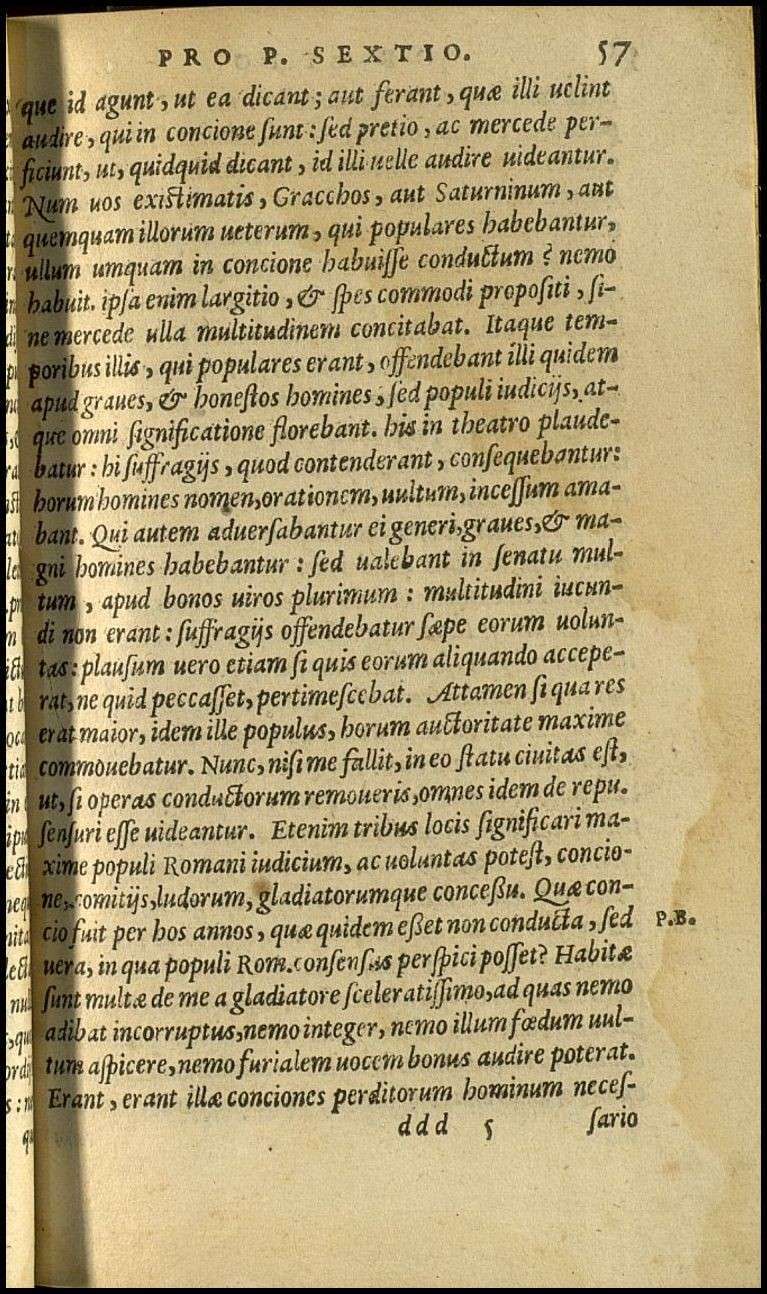 PRO P. SEXTIO. 57
que id agunt, ut ea dicant; aut ferant, quæ illi uelint
audire, qui in concione sunt: sed pretio, ac mercede per-
ficiunt, ut, quidquid dicant, id illi uelle audire uideantur.
Num uos existimatis, Gracchos, aut Saturninum, aut
quemquam illorum ueterum, qui populares habebantur,
ullum umquam in concione habuisse conductum? nemo
habuit. ipsa enim largitio, & spes commodi propositi, si-
ne mercede ulla multitudinem concitabat. Itaque tem-
poribus illis, qui populares erant, offendebant illi quidem
apud graues, & honestos homines, sed populi iudicijs, at-
que omni significatione florebant. his in theatro plaude-
batur: hi suffragijs, quod contenderant, consequebantur:
horum homines nomen, orationem, uultum, incessum ama-
bant. Qui autem aduersabantur ei generi, graues, & ma-
gni homines habebantur: sed ualebant in senatu mul-
tum, apud bonos uiros plurimum: multitudini iucun-
di non erant: suffragijs offendebatur sæpe eorum uolun-
tas: plausum uero etiam si quis eorum aliquando accepe-
rat, ne quid peccasset, pertimescebat. Attamen si qua res
erat maior, idem ille populus, horum auctoritate maxime
commouebatur. Nunc, nisi me fallit, in eo statu ciuitas est,
ut, si operas conductorum remoueris, omnes idem de repu.
sensuri esse uideantur. Etenim tribus locis significari ma-
xime populi Romani iudicium, ac uoluntas potest, concio-
ne, comitijs, ludorum, gladiatorumque concessu. Quæ con-
cio fuit per hos annos, quæ quidem esset non conducta, sed P.B.
uera, in qua populi Rom. consensus perspici posset? Habitæ
sunt multæ de me a gladiatore sceleratissimo, ad quas nemo
adibat incorruptus, nemo integer, nemo illum fœdum uul-
tum aspicere, nemo furialem uocem bonus audire poterat.
Erant, erant illæ conciones perditorum hominum neces-
ddd 5 sario